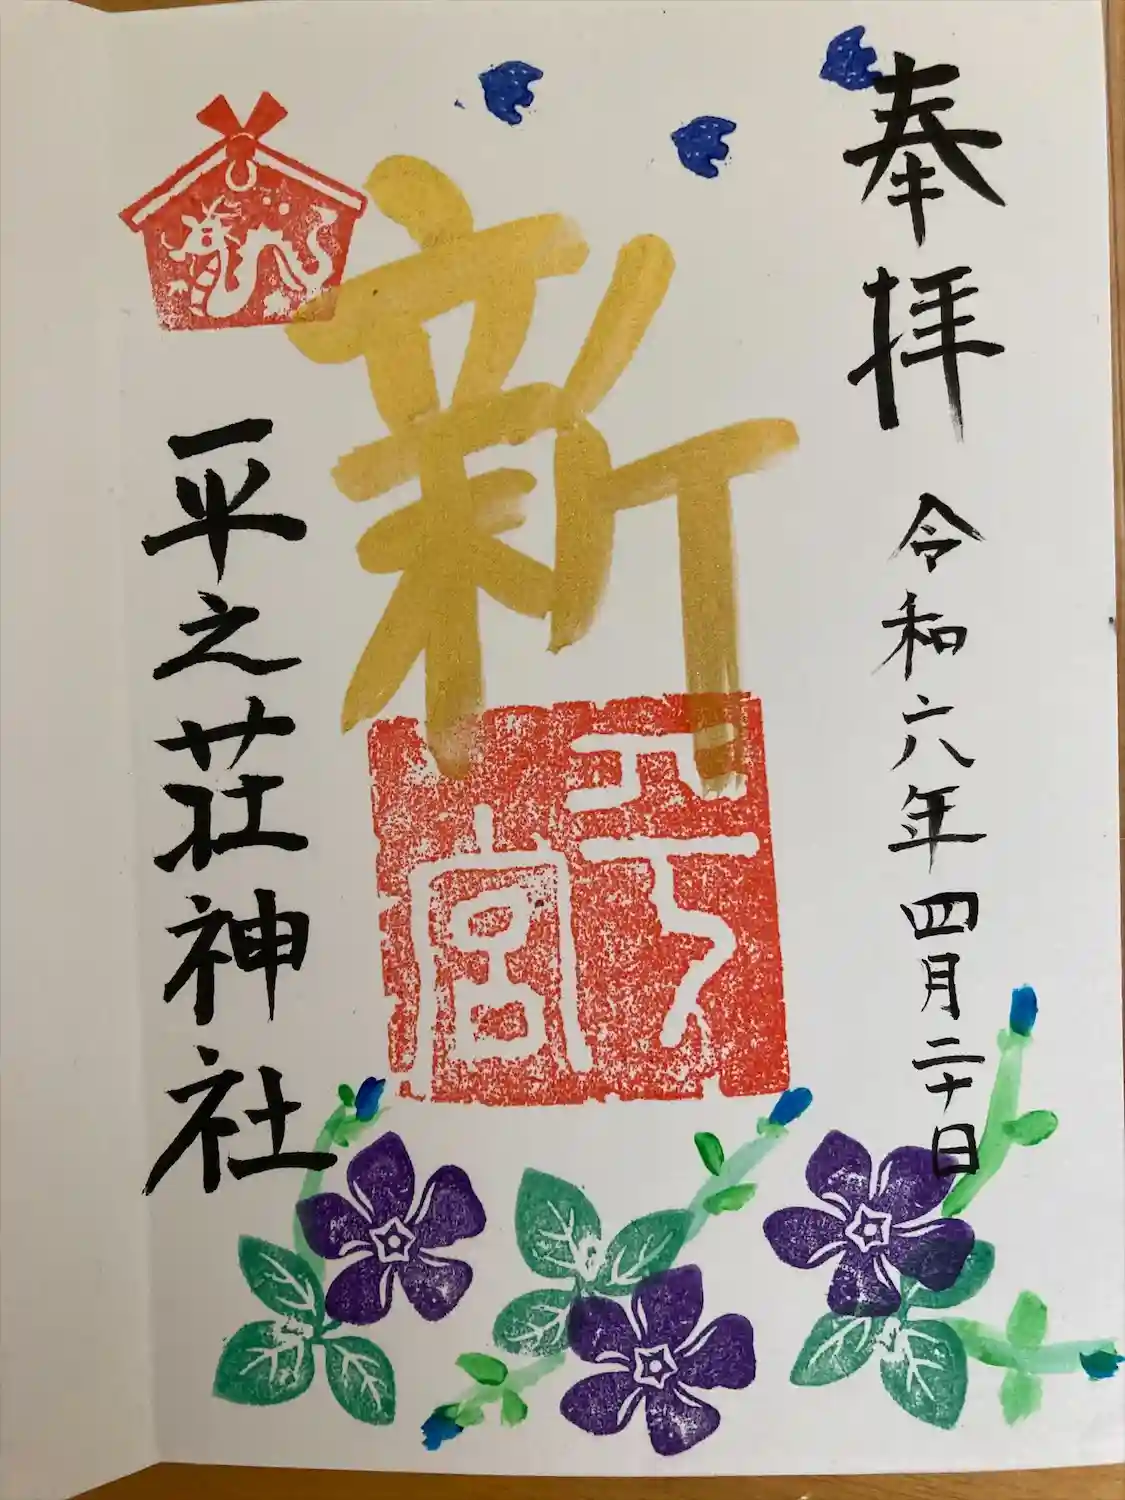 奉拝
令和六年四月二十日
新
平之荘神社